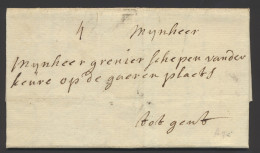 4 Mijnheer
Mijnheer grenier schepen vander
keure op de gaeren plaets
tot gent